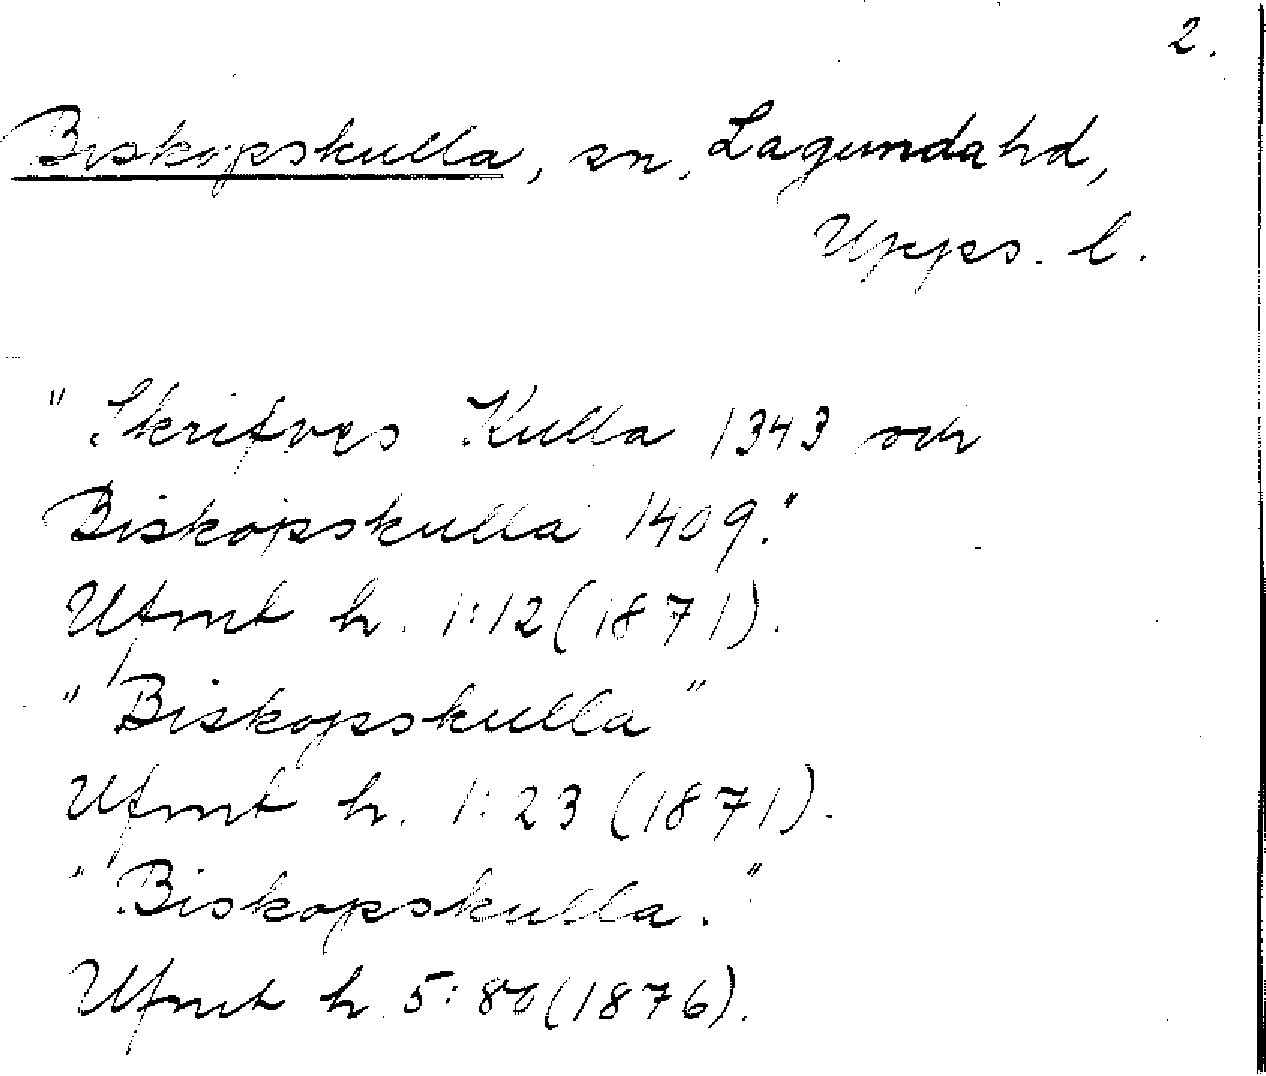 2.
Biskopskulla, sn, Lagunda hd,
Upps. l.
"Skrifves Kulla 1343 och
Biskopskulla 1409."
Ufmt h. 1:12 (1871).
"Biskopskulla"
Ufmt h. 1:23 (1871).
"Biskopskulla."
Ufmt h. 5:80 (1876).